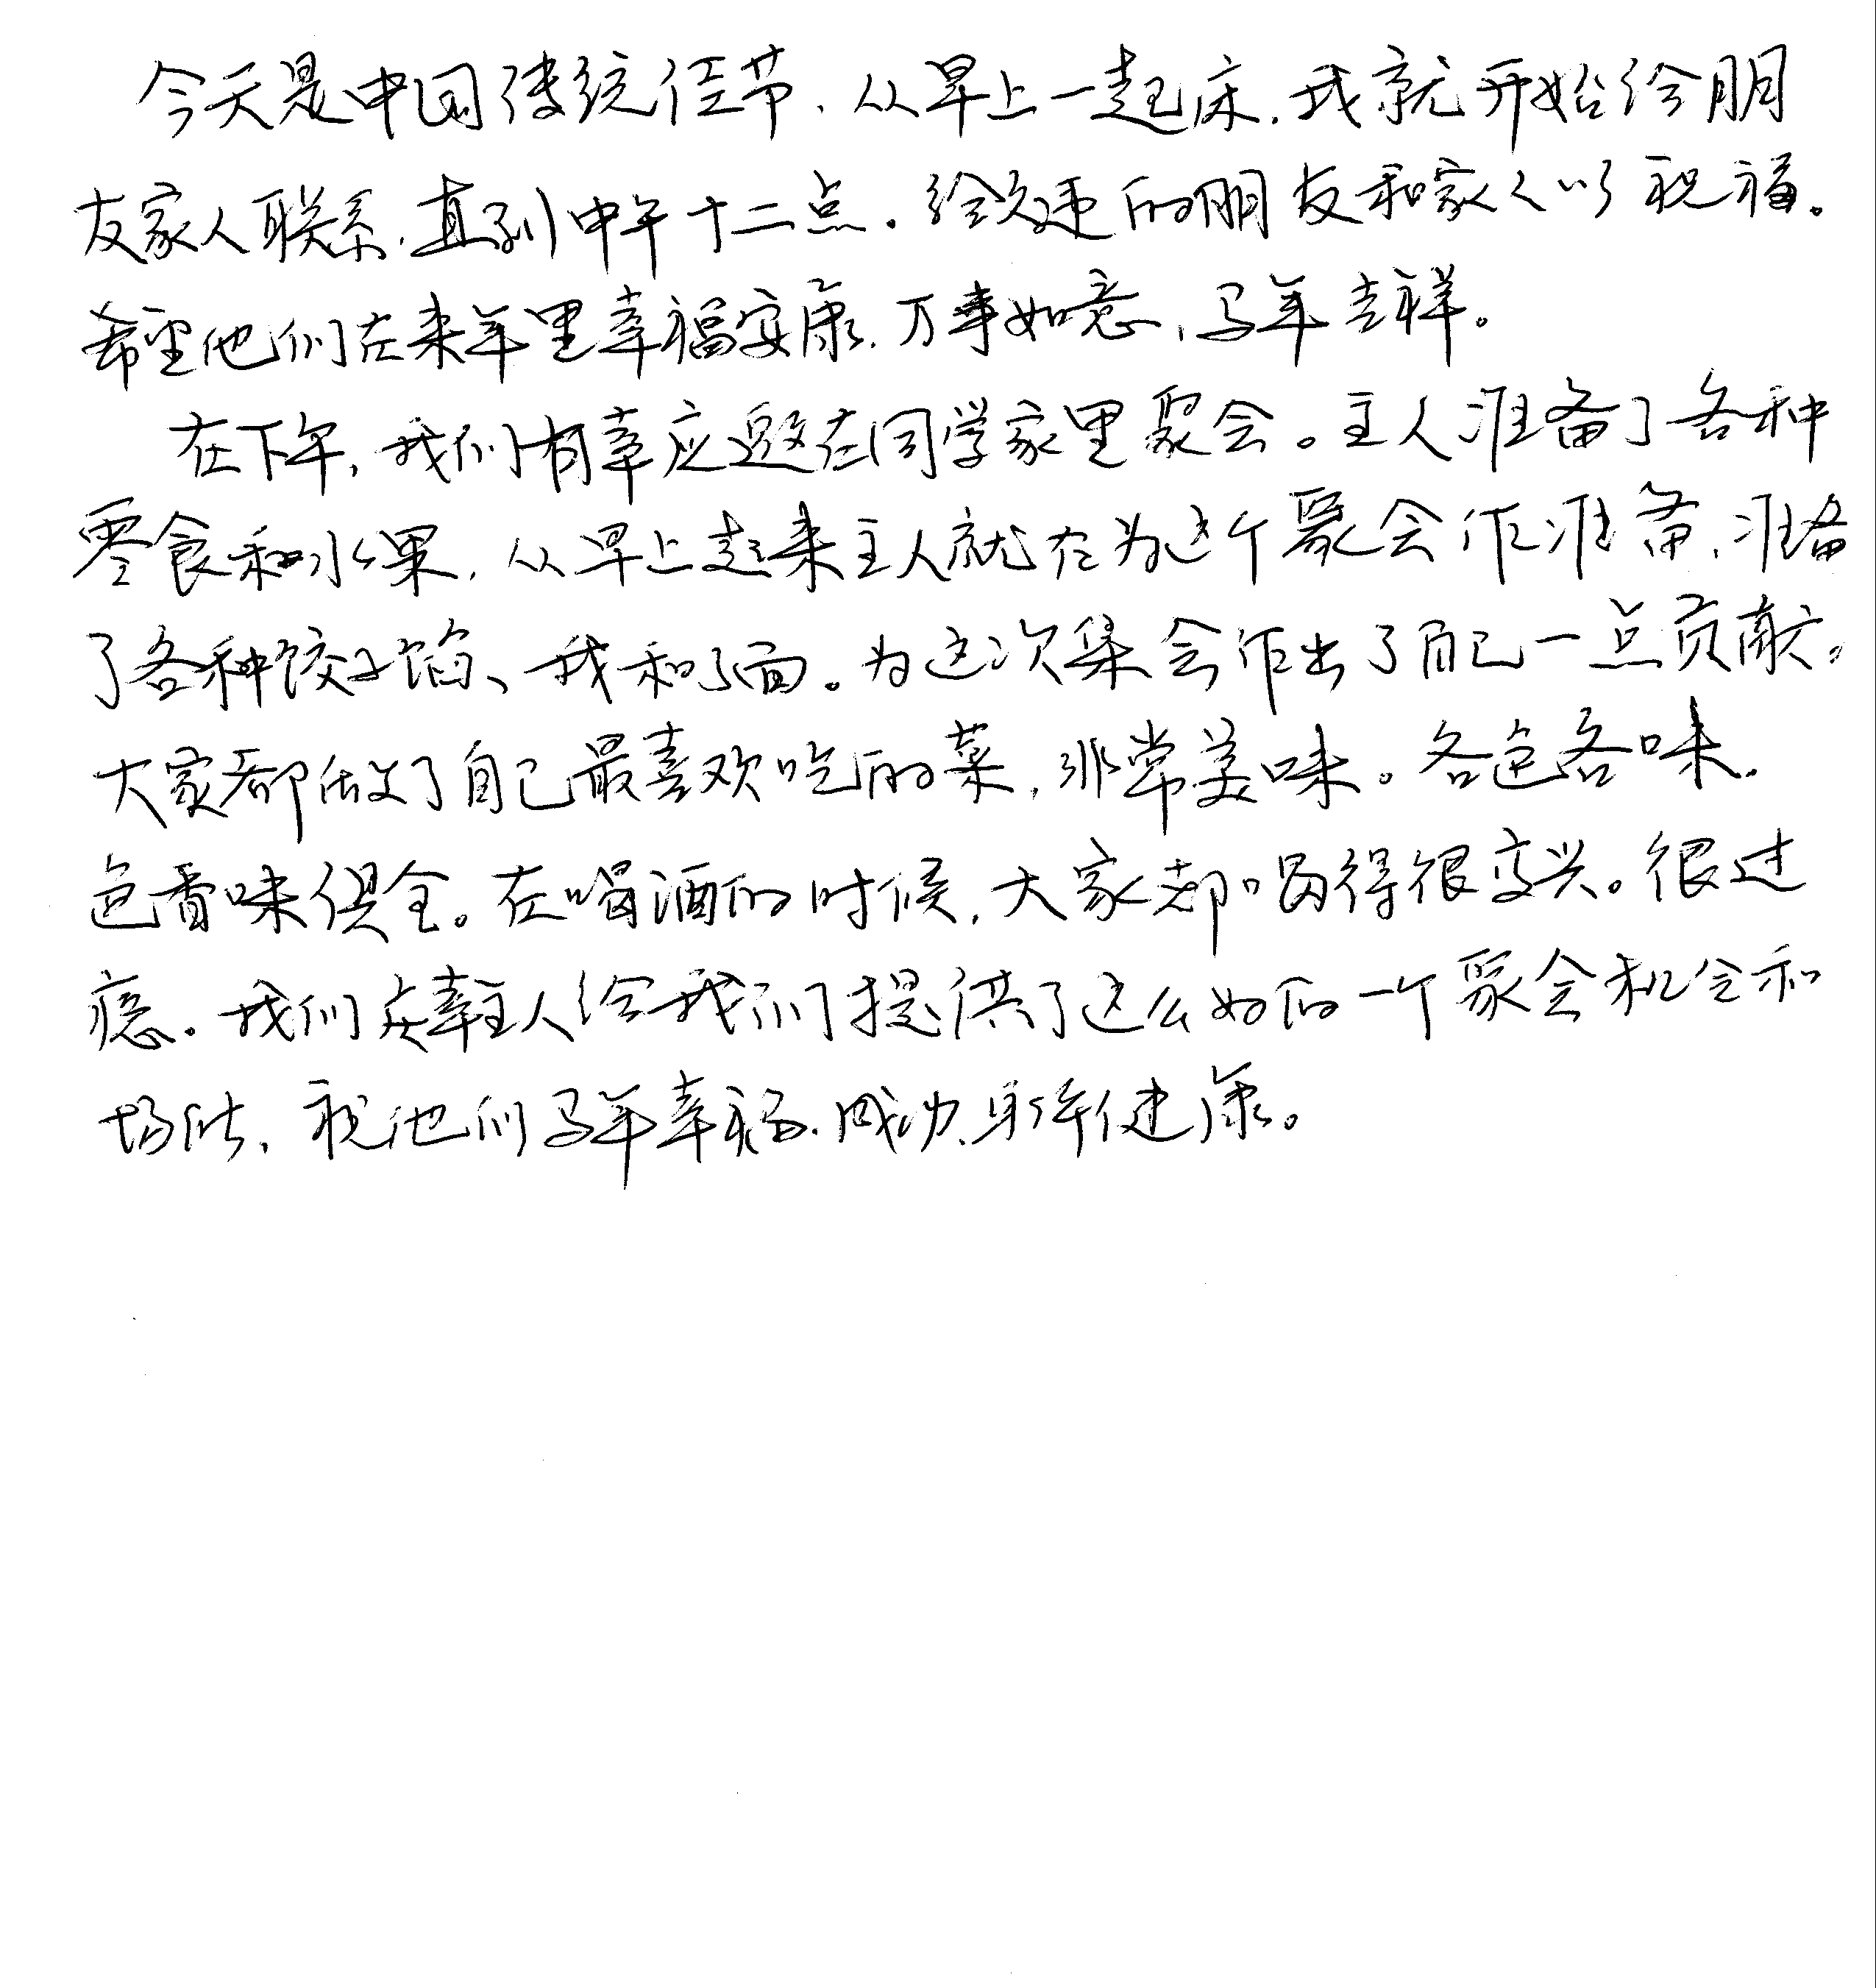 今天是中国传统佳节，从早上一起床，我就开始给朋
友家人联系，直到中午十二点。给久违的朋友和家人以祝福。
希望他们在来年里幸福安康，万事如意，马年吉祥。
在下午，我们有幸应邀在同学家里聚会。主人准备了各种
零食和水果，从早上起来主人就在为这个聚会作准备，准备
了各种饺子馅、我和了面。为这次集会作出了自己一点贡献。
大家都做了自己最喜欢吃的菜，非常美味。各色各味，
色香味俱全。在喝酒的时候，大家都喝得很高兴。很过
瘾。我们庆幸主人给我们提供了这么好的一个聚会机会和
场所，祝他们马年幸福、成功、身体健康。